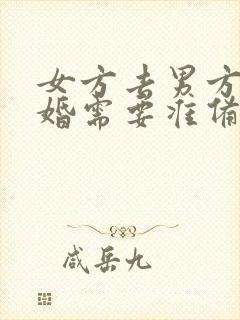 女方去男方
婚需要准备
咸岳九